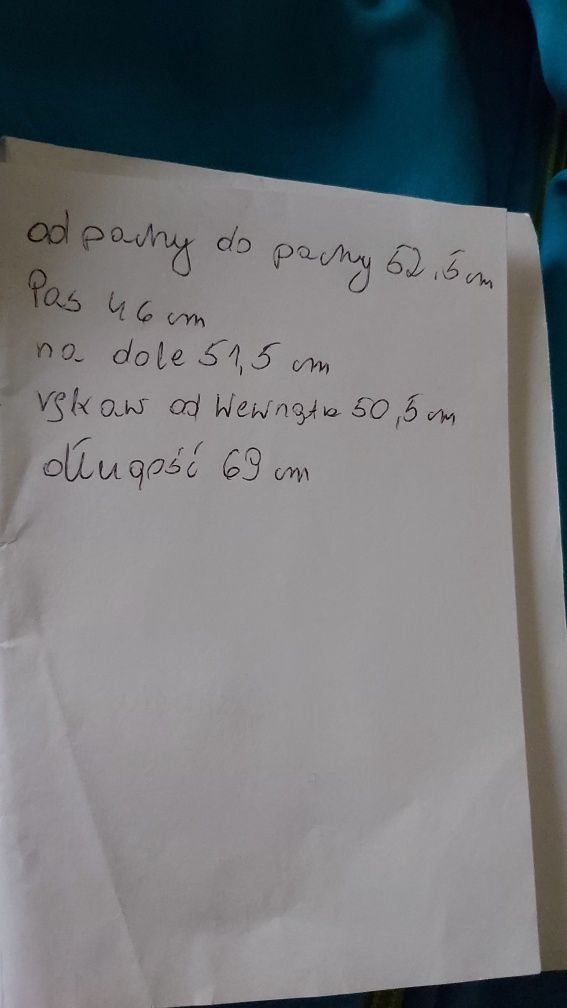 od pachy do pachy 52,5 cm
Pas 46 cm
na dole 51,5 cm
rękaw od wewnątr 50,5 cm
długość 69 cm